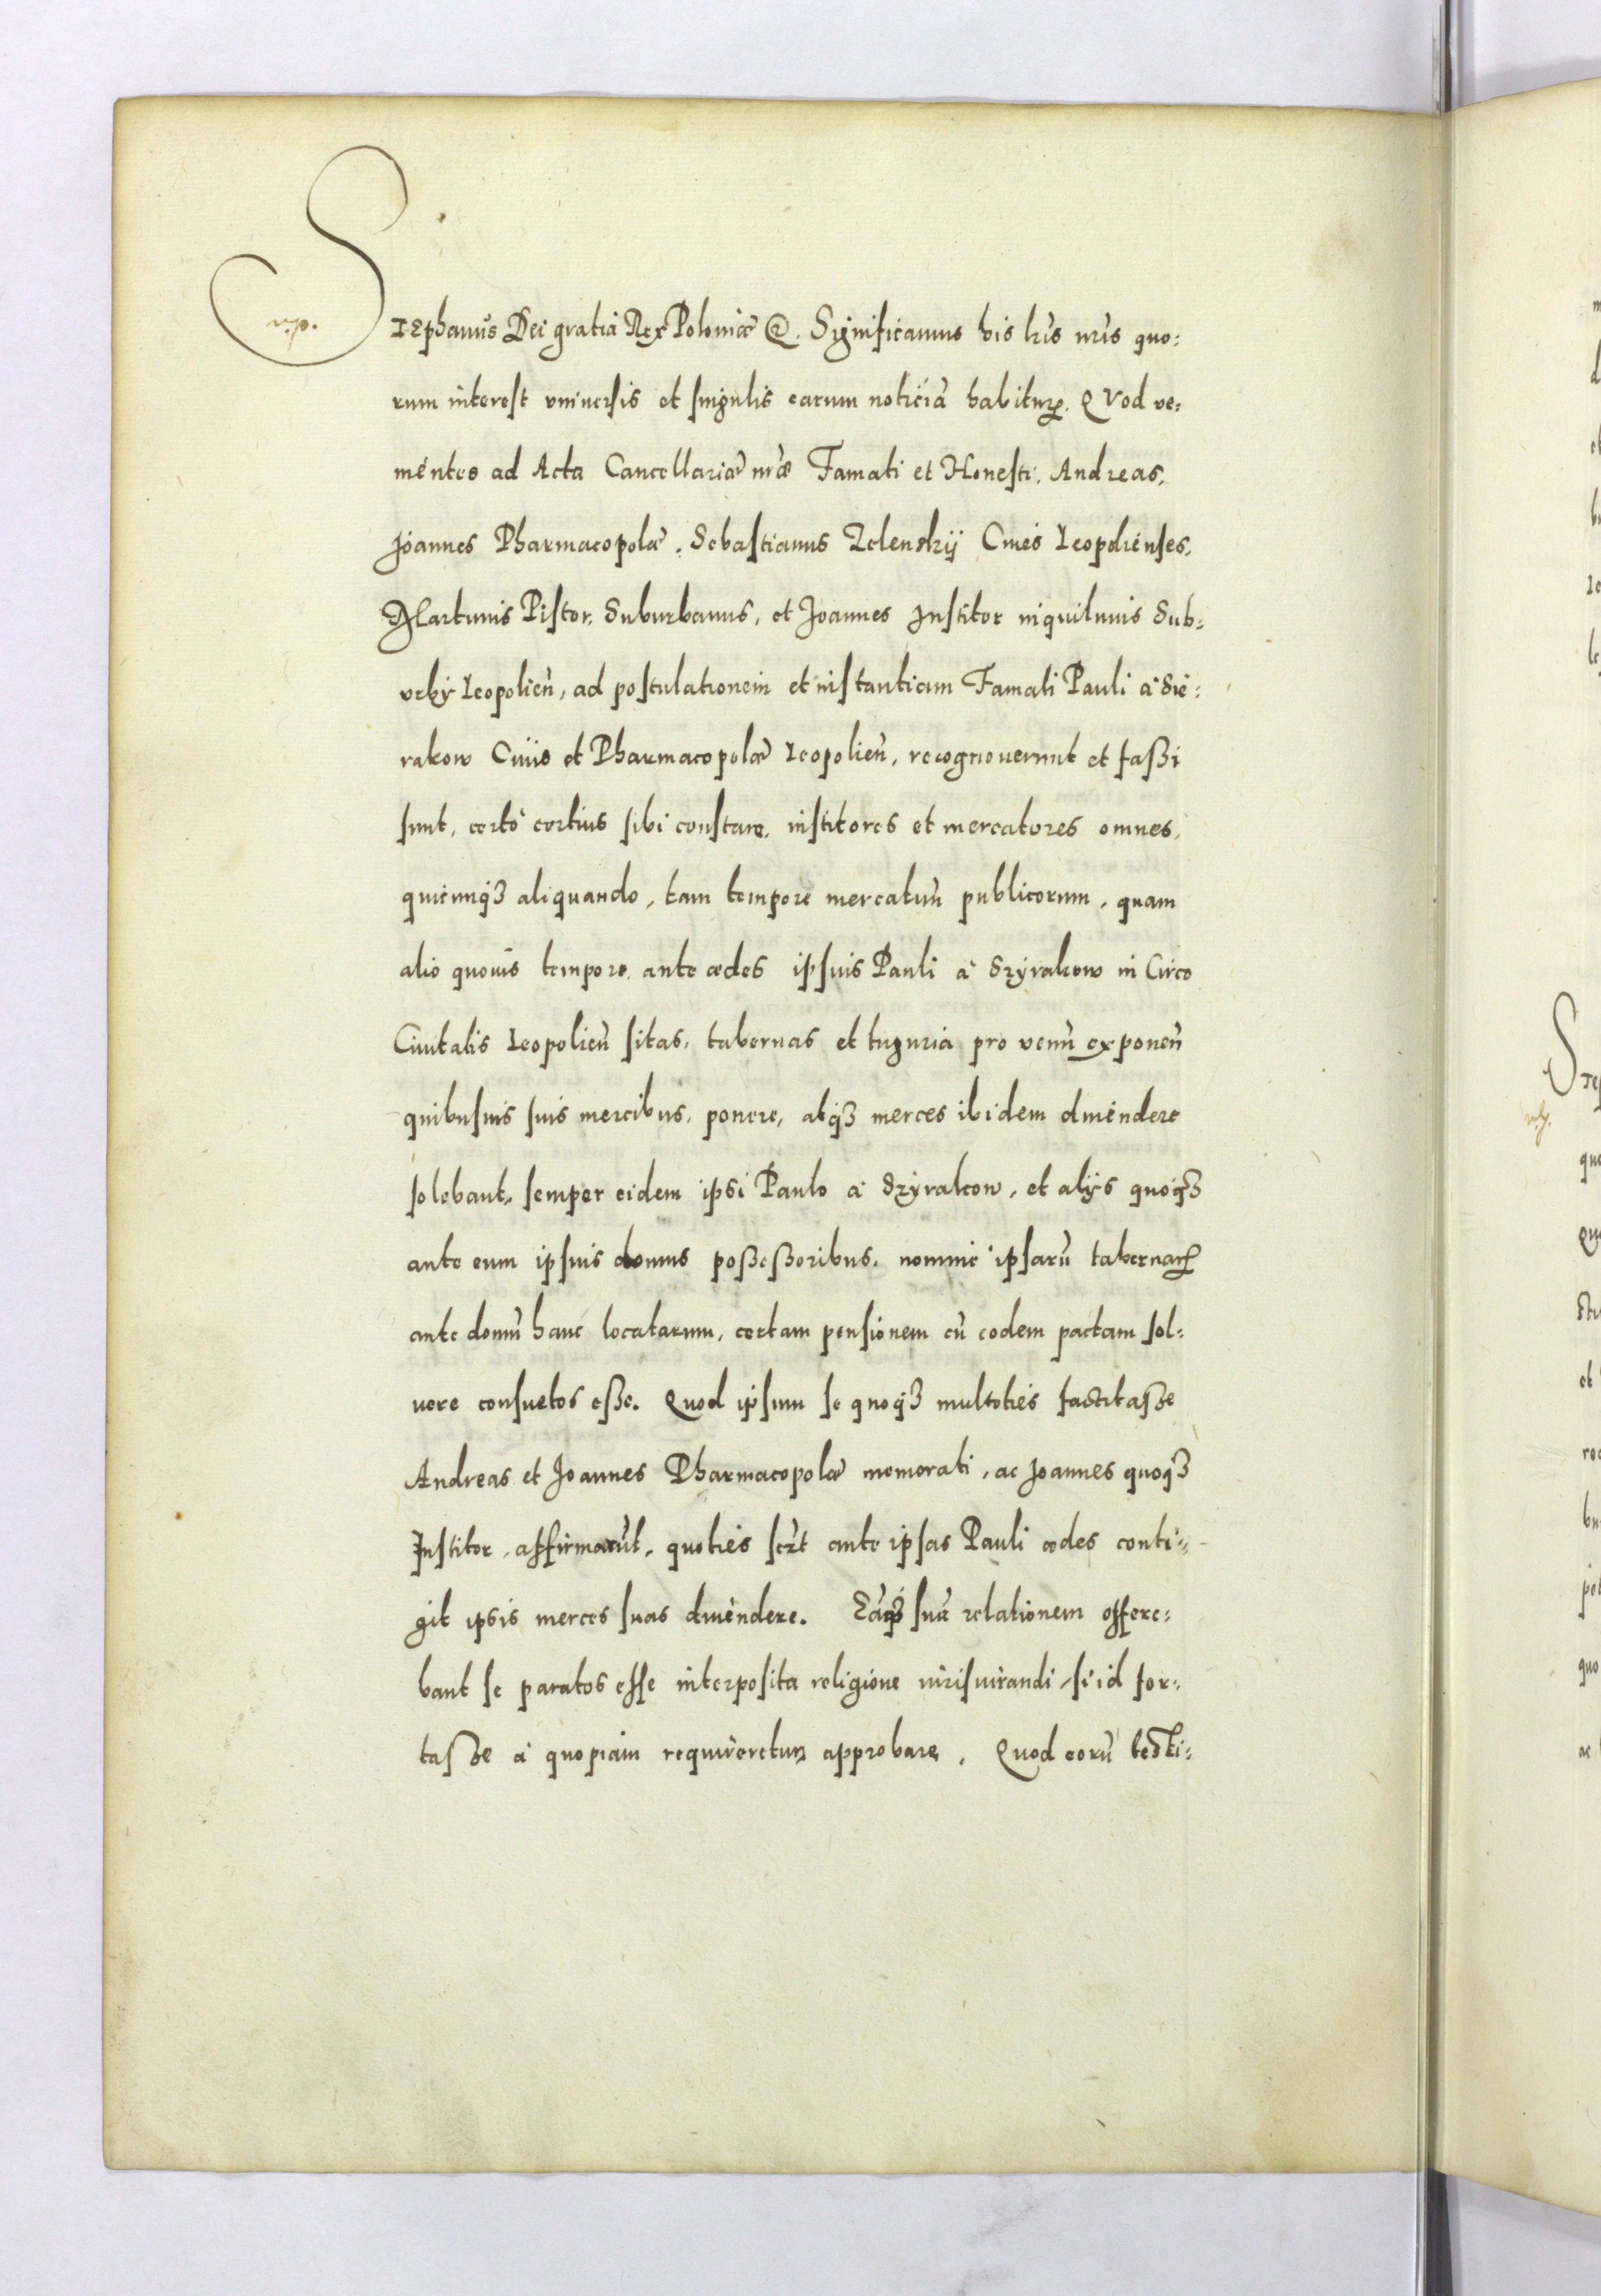 STEphanus Dei gratia Rex Poloniæ @. Significamus his lrīs nrīs quo:
rum interest vniuersis et singulis earum noticiā habiturꝝ. QVod ve:
nientes ad Acta Cancellariæ nræ Famati et Honesti, Andreas,
Joannes Pharmacopolæ, Sebastianus Zelenskij Ciues Leopolienses,
Martinus Pistor, Suburbanus, et Joannes Institor inquilinus Sub:
vrbÿ Leopolien̄, ad postulationem et instantiam Famati Pauli à Sie:
rakow Ciuis et Pharmacopolæ Leopolien̄, recognouerunt et faßi
sunt, certò certius sibi constare, institores et mercatores omnes,
quicunqꝫ aliquando, tam tempore mercatuū publicorum, quam
alio quouis tempore, ante ædes ipsius Pauli à Szÿrakow in Circo
Ciuitatis Leopolien̄ sitas, tabernas et tuguria pro venū exponen̄
quibusuis suis mercibus, ponere, atqꝫ merces ibidem diuendere
solebant, semper eidem ipsi Paulo à Szÿrakow, et alÿs quoqꝫ
ante eum ipsius domus poßeßoribus, nomine ipsarū tabernarꝝ
ante domū hanc locatarum, certam pensionem cū eodem pactam sol:
uere consuetos eße. Quod ipsum se quoqꝫ multoties factitaße
Andreas et Joannes Pharmacopolæ memorati, ac Joannes quoqꝫ
Institor, affirmarūt, quoties sczt ante ipsas Pauli ædes conti:
git ipsis merces suas diuendere. Eāqꝫ suā relationem offere:
bant se paratos esse interposita religione iurisiurandi, si id for:
taße à quopiam requireretur, approbare. Quod eorū testi:
v.p.